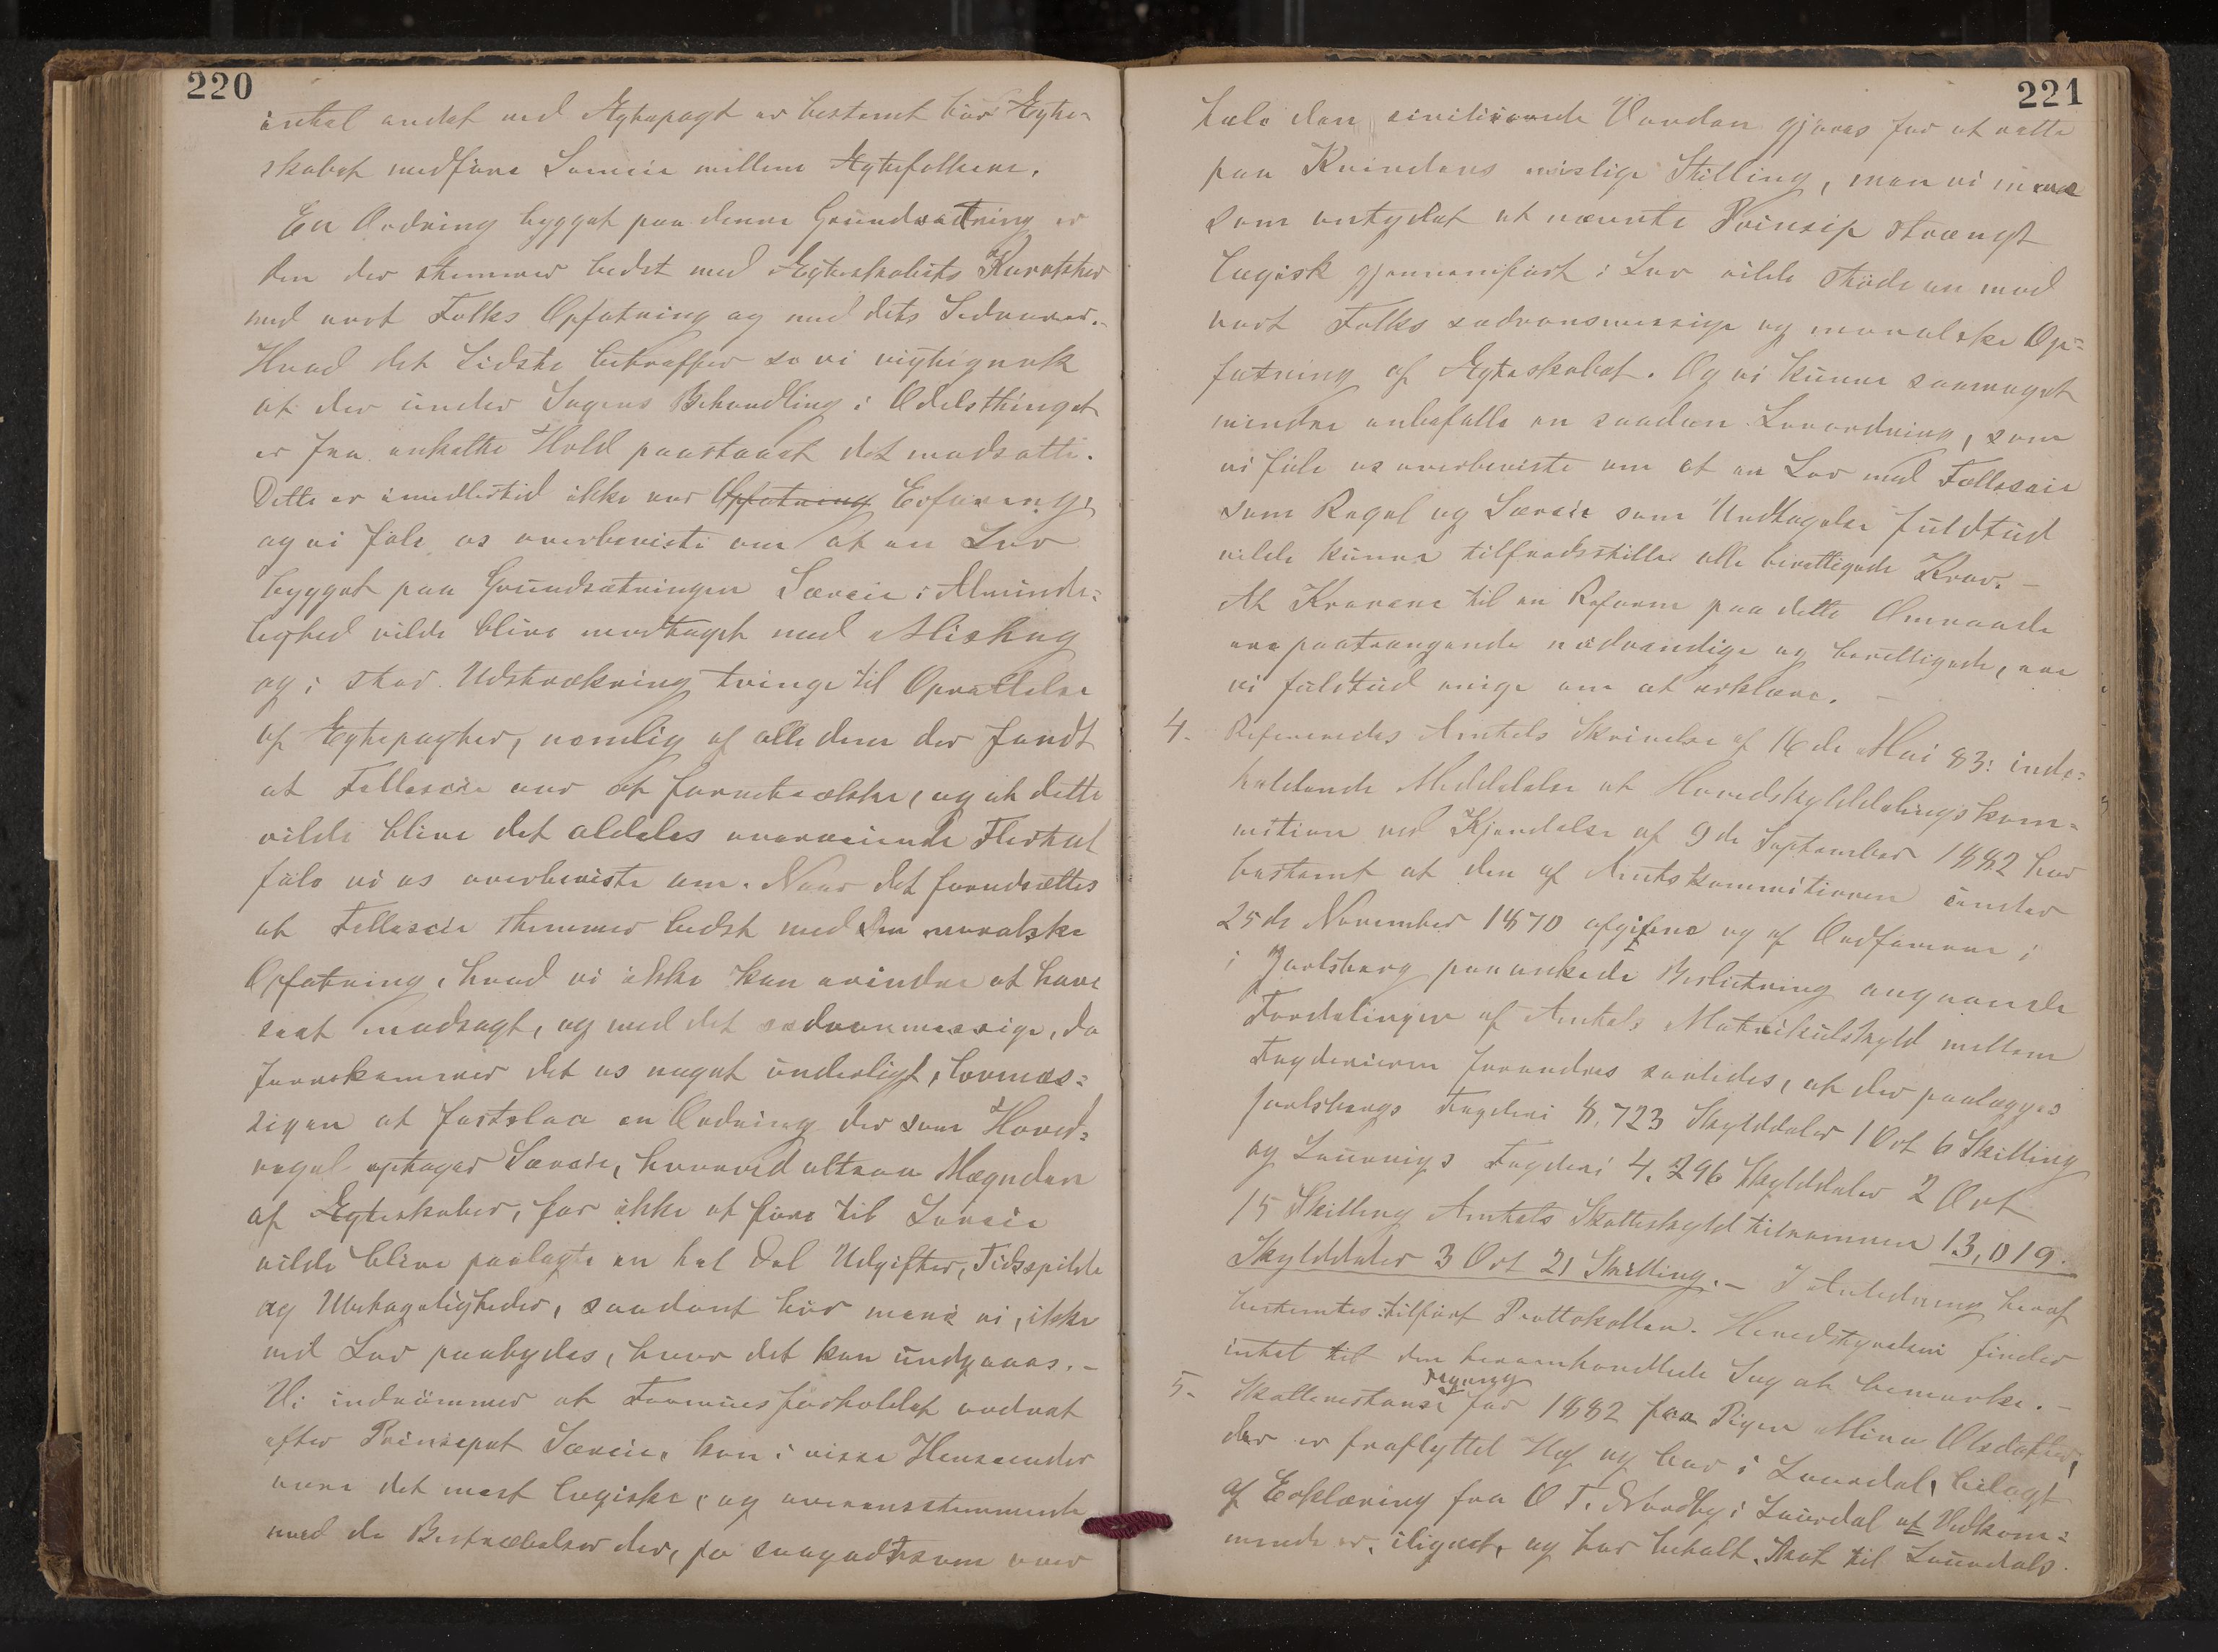 220
intet andet ved Ægtepagt er bestemt bör Ægte-
skabet medföre Særeie mellem Ægtefolkene.
En Ordning bygget paa denne Grundsætning er
den der stemmer bedst med Ægteskabets Karakter
med vort Folks Opfatning og med dets Sedvaner.
Hvad det Sidste betræffer se vi rigtignok
at der under Sagens Behandling i Odelsthinget
er fra enkelte Hold paastaaet det modsatte.
Dette er imidlertid ikke vor Opfatning Erfaring,
og vi føle os overbeviste om at en Lov
bygget paa Grundsætningen Særeie i Alminde-
lighed vilde blive modtaget med Mishag
og i stor Udstrækning tvinge til Oprettelse
af Egtepagter, nemlig af alle dem der fandt
at Felleseie var at foretrække, og at dette
vilde blive det aldeles overveiende Flertal
føle vi os overbeviste om. Naar det forudsættes
at Felleseie stemmer bedst med den moralske
Opfatning, hvad vi ikke kan erindre at have
seet modsagt, og med det sedvanmæssige, da
forekommer det os noget underligt, lovmæs-
sigen at fastslaa en Ordning der som Hoved-
regel optager Særeie, hvorved altsaa Mægnden
af Egteskaber, for ikke at føre til Særeie
vilde blive paalagte en hel Del Udgifter, Tidsspilde
og Ubehageligheder, saadant bör mene vi, ikke
ved Lov paabydes, hvor det kan undgaaes. -
Vi indrömmer at Formuesforholdet ordnet
efter Prinsipet Særeie, kan i visse Henseender
være det mest logiske, og overensstemmende
med de Bestræbelser der, paa saagodtsom over
221
hele den siviliserede Verden gjøres for at rette
paa Kvindens mislige Stilling, men vi mene
som antydet at nævnte Prinsip strængt
logisk gjennemført i Lov vilde støde an mod
vort Folks sædvansmessige og moralske Op-
fatning af Ægteskabet. Og vi kunne saameget
mindre anbefalle en saadan Lovordning, som
vi føle os overbeviste om at en Lov med Fælleseie
som Regel og Særeie som Undtagelse fuldtud
vilde kunne tilfredsstille alle berettigede Krav. -
At Kravene til en Reform paa dette Omraade
ere paatrængende nödvendige og berettigede, ere
vi fuldtud enige om at erklære. -
4. Refereredes Amtets Skrivelse af 16de Mai 83: inde-
holdende Meddelelse at Hovedskylddelingskom-
mition ved Kjendelse af 9de September 1882 har
bestemt at den af Amtskommitionen under
25de November 1870 afgifne og af Ordförerne i
i Jarlsberg paaankede Beslutning angaaende
Fordelingen af Amtets Matrikulskyld mellem
Fogderierne forandres saaledes, at der paalægges
Jarlsbergs Fogderi 8,723 Skylddaler 1 Ort 6 Skilling
og Laurvigs Fogderi 4,296 Skylddaler 2 Ort
15 Skilling Amtets Skatteskyld tilsammen 13,019.
Skylddaler 3 Ort 21 Skilling. - I Anledning heraf
bestemtes tilført Prottokollen. Heredstyrelsen finder
intet til den heromhandlede Sag at bemærke. -
5. Skatterestanse regning for 1882 fra Pigen Mina Olsdatter,
der er fraflyttet Hof og bor i Laurdal, bilagt
af Erklæring fra O T. Nordby i Laurdal at Vedkom-
mende er iligned, og har betalt Skat til Laurdals